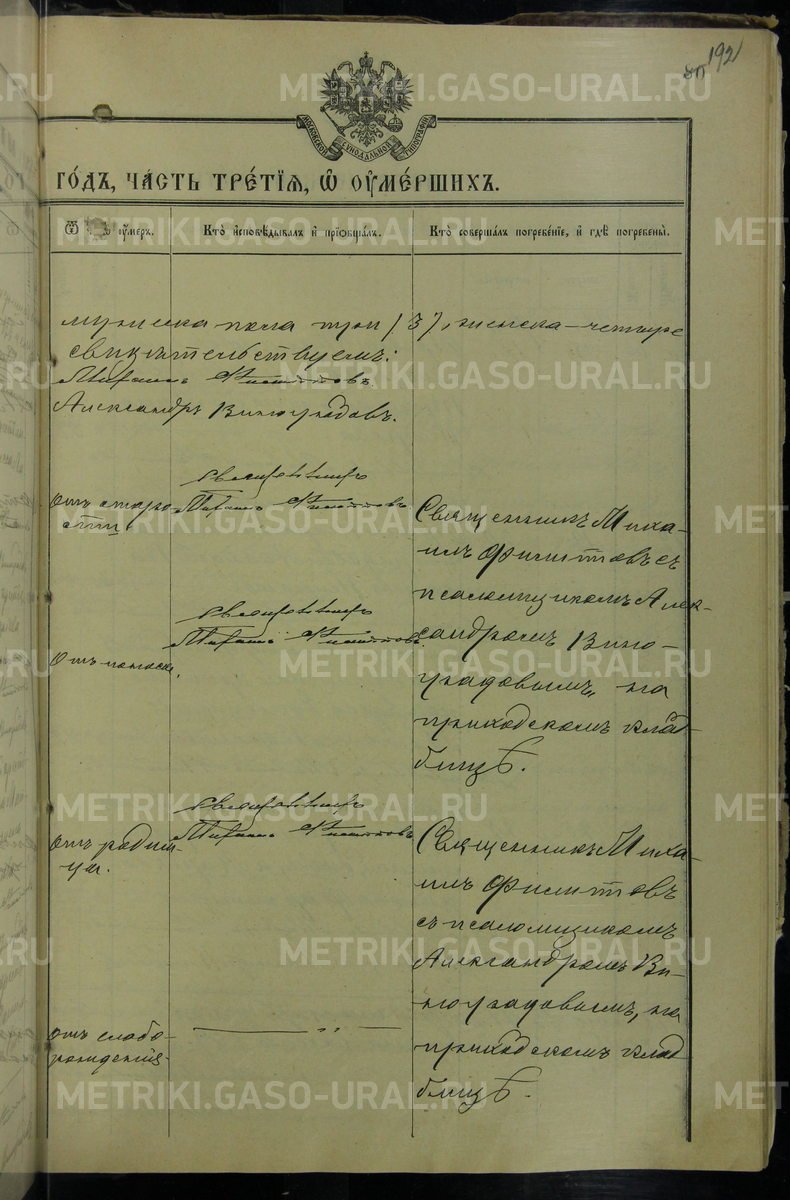 192
МОСКОВСКОЙ СѴНОДАЛЬНОЙ ТИПОГРАФІИ
ГО́ДЪ, ЧА́СТЬ ТРЕ́ТІѦ, Ѡ҆ ОУ҆МЕ́РШИХЪ.
Ѿ оу҆́меръ.
Кто̀ и҆сповѣ́дывалъ и҆ прїѡбща́лъ.
Кто̀ соверша́лъ погребе́нїе, и҆ гдѣ̀ погребены̀.
мужеска пола три (3), женска – четыре
свидѣтельствуемъ:
Михаилъ Филитовъ
Александръ Виноградовъ.
Отъ старо-
сти.
Священникъ
Михаилъ Филитовъ
Священникъ Миха-
илъ Филитовъ съ
псаломщикомъ Алек-
сандромъ Вино-
градовымъ, на
приходскомъ клад-
бищѣ.
Отъ поноса.
Священникъ
Михаилъ Филитовъ
отъ родим-
ца.
Священникъ
Михаилъ Филитовъ
Священникъ Миха-
илъ Филитовъ
съ псаломщикомъ
Александромъ Ви-
ноградовымъ, на
приходскомъ клад-
бищѣ.
отъ слабо-
рожденія
— „ —
METRIKI.GASO-URAL.RU